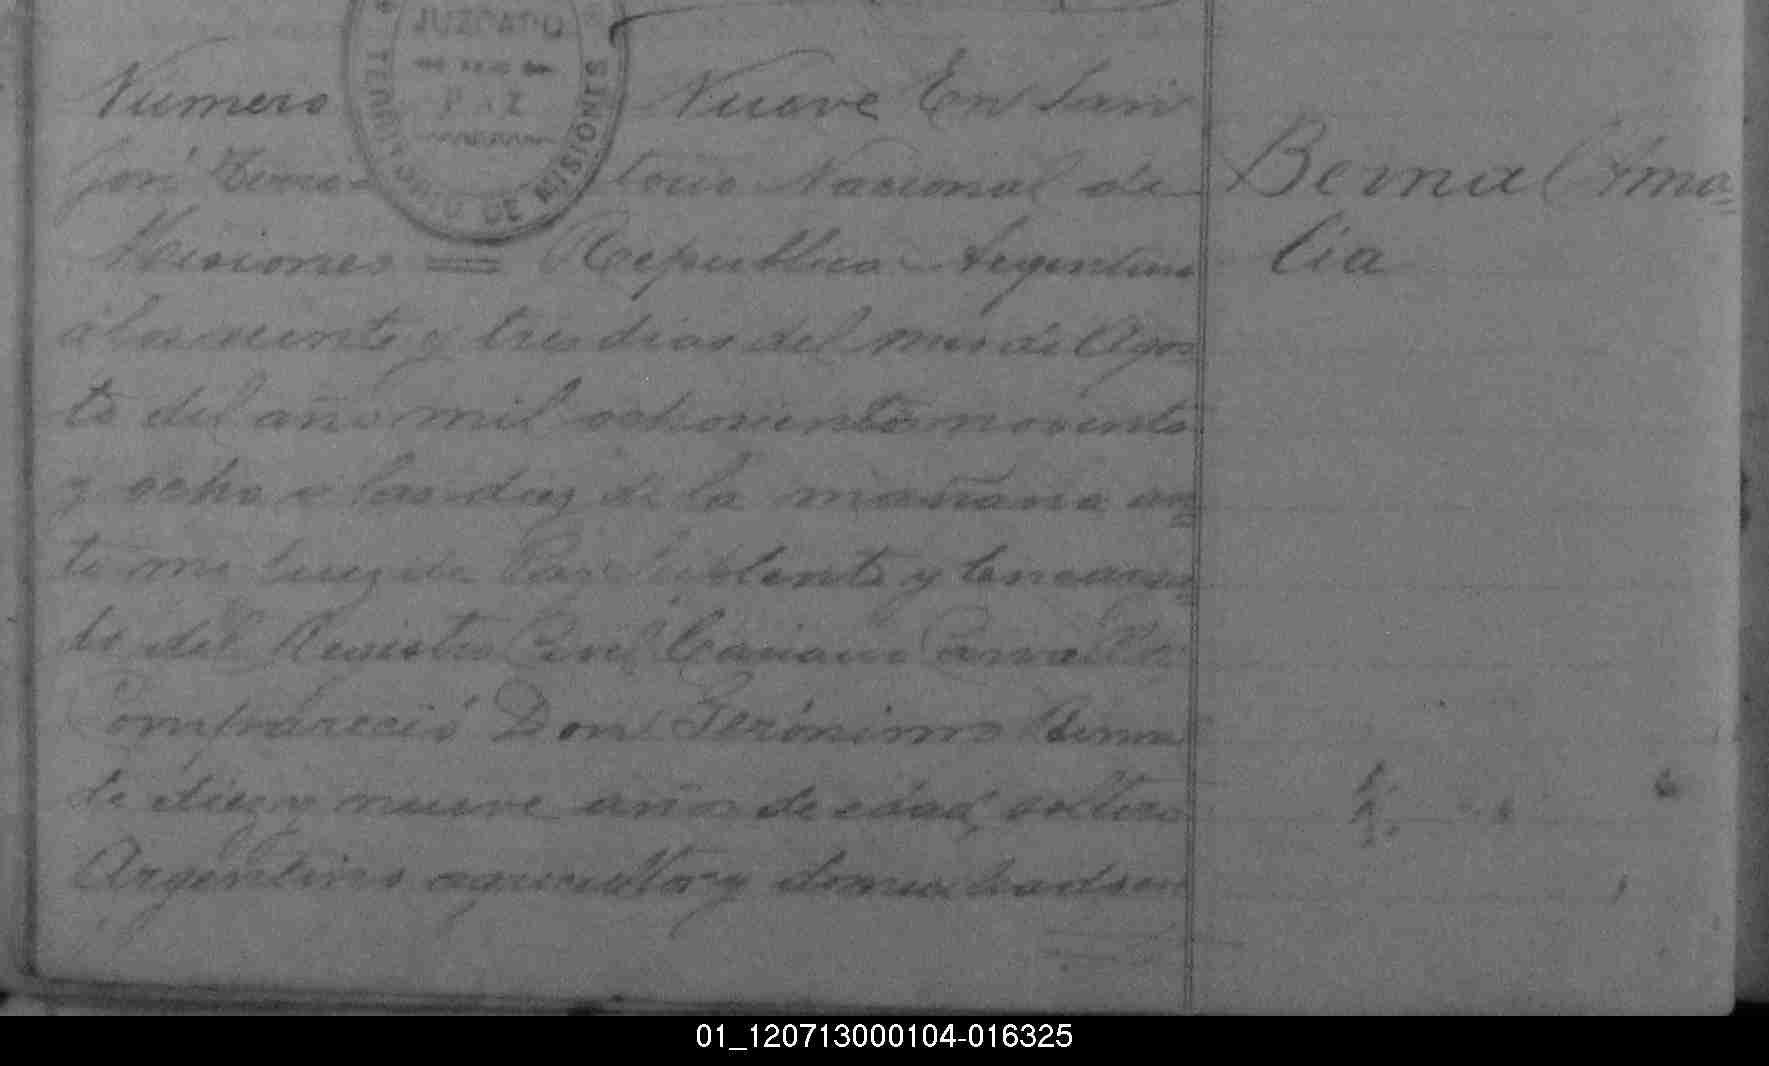 JUZGADO
PAZ
TERRITORIO DE MISIONES
Numero Nueve En San
José Nacional de
Misiones = Republica Argentina
á los veinte y tres dias del mes de Agos
to del año mil ochocientos noventa
y ocho a las diez de la mañana an=
te mi Juez de Paz y Encarga=
do del Registro Civil
Compareció Don Gerónimo
de diez y nueve años de edad soltero
Argentino agricultor y domiciliado en
Bernal Ama=
lia
01_120713000104-016325